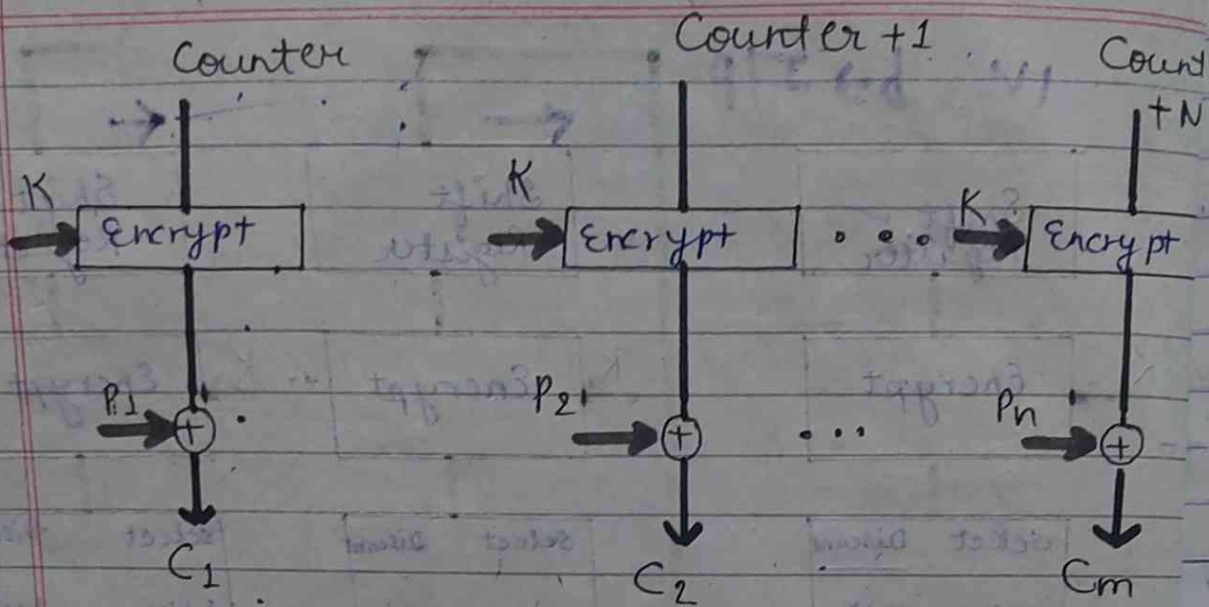 Counter Counter +1 Count
+N
K K K
Encrypt Encrypt Encrypt
P1 P2 Pn
C1 C2 Cm